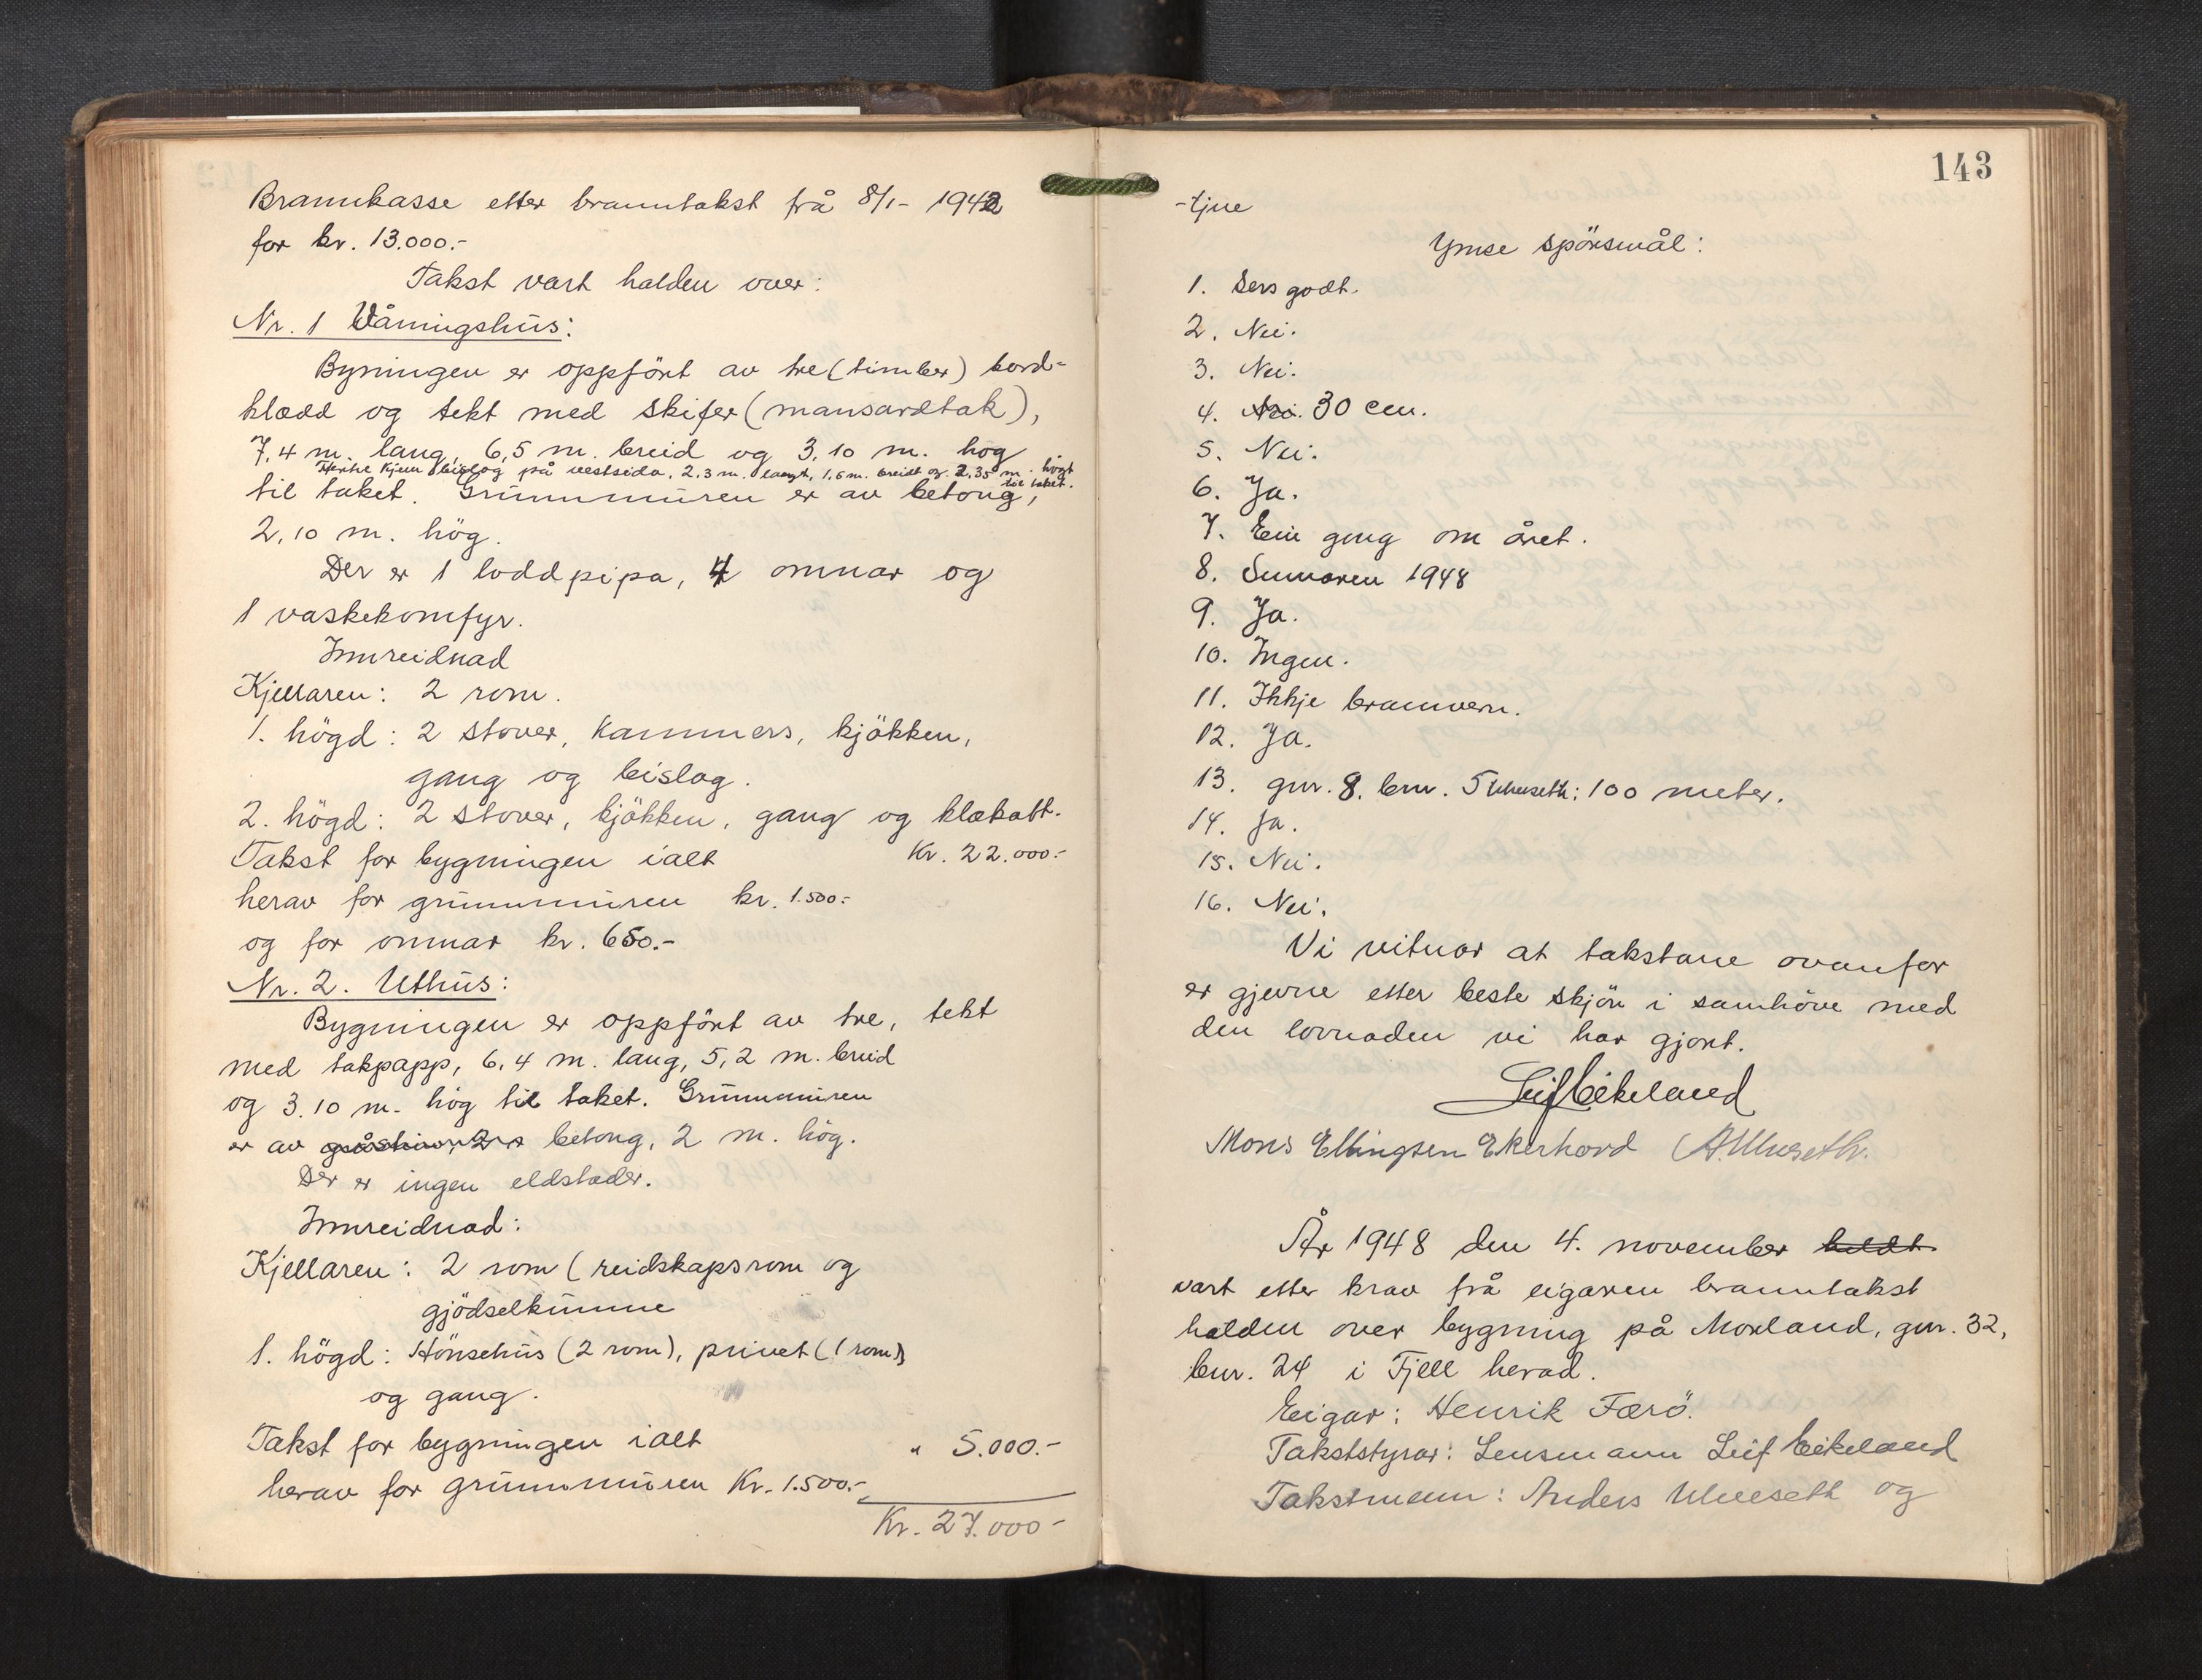 Brannkasse etter branntakst frå 8/1- 1942
for kr. 13.000.-
Takst vart halden over:
Nr. 1 Våningshus:
Byningen er oppfört av tre (timber) bord-
klædd og tekt med skifer (mansardtak),
7,4 m. lang, 6,5 m. breid og 3,10 m. hög
Hertil kjem bislog på vestsida, 2,3 m. langt, 1,6 m. breidt og 2,35 m. högt
til taket.
til taket. Grunnmuren er av betong,
2,10 m. hög.
Der er 1 loddpipa, 4 omnar og
1 vaskekomfyr.
Innreidnad
Kjellaren: 2 rom.
1. högd: 2 stover, kammers, kjökken,
gang og bislag.
2. högd: 2 stover, kjökken, gang og klækott.
Takst for bygningen ialt Kr. 22.000.-
herav for grunnmuren kr. 1.500.-
og for omnar kr. 650.-
Nr. 2. Uthus:
Bygningen er oppfört av tre, tekt
med takpapp, 6,4 m. lang, 5,2 m. breid
og 3.10 m. hög til taket. Grunnmuren
er av gråstein, 2,0 betong, 2 m. hög.
Der er ingen eldstader.
Innreidnad:
Kjellaren: 2 rom (reidskapsrom og
gjödselkumme
1. högd: Hönsehus (2 rom), privet (1 rom)
og gang.
Takst for bygningen ialt " 5.000.-
herav for grunnmuren Kr. 1.500.-
Kr. 27.000-
143
-tjue
Ymse spörsmål:
1. Sers godt.
2. Nei.
3. Nei.
4. Nei. 30 cm.
5. Nei.
6. Ja.
7. Ein gong om året.
8. Sumaren 1948
9. Ja.
10. Ingen.
11. Ikkje brannvern.
12. Ja.
13. gnr. 8. bnr. 5 Ulveseth: 100 meter.
14. Ja.
15. Nei.
16. Nei.
Vi vitnar at takstane ovanfor
er gjevne etter beste skjön i samhöve med
den lovnaden vi har gjort.
Leif Eikeland
Mons Ellingsen Ekerhovd A. Ulveseth.
År 1948 den 4. november heldt
vart etter krav frå eigaren branntakst
halden over bygning på Morland, gnr. 32,
bnr. 24 i Fjell herad.
Eigar: Henrik Færö.
Takststyrar: Lensmann Leif Eikeland
Takstmenn: Anders Ulveseth og